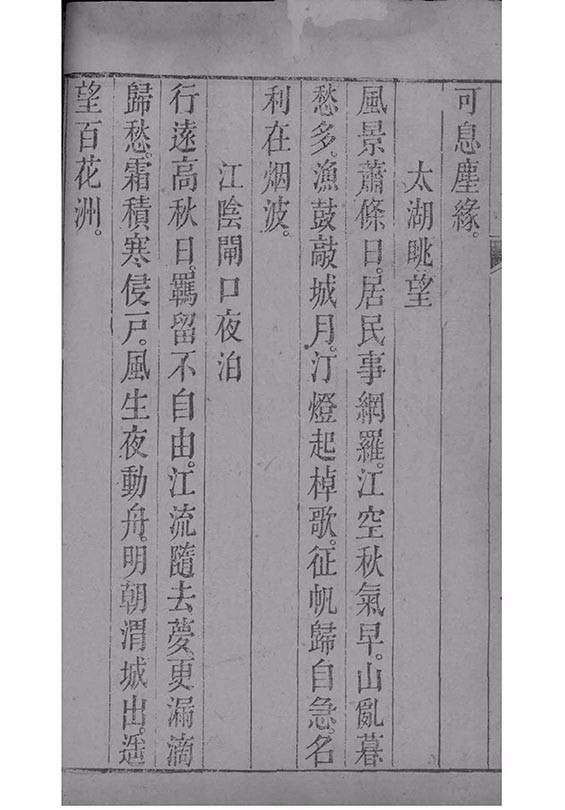 可息塵緣。
太湖眺望
風景蕭條日。居民事網羅。江空秋氣早。山亂暮
愁多。漁鼓敲城月。汀燈起棹歌。征帆歸自急。名
利在烟波。
江陰閘口夜泊
行遠高秋日。羈留不自由。江流隨去夢。更漏滴
歸愁。霜積寒侵戶。風生夜動舟。明朝渭城出。遥
望百花洲。